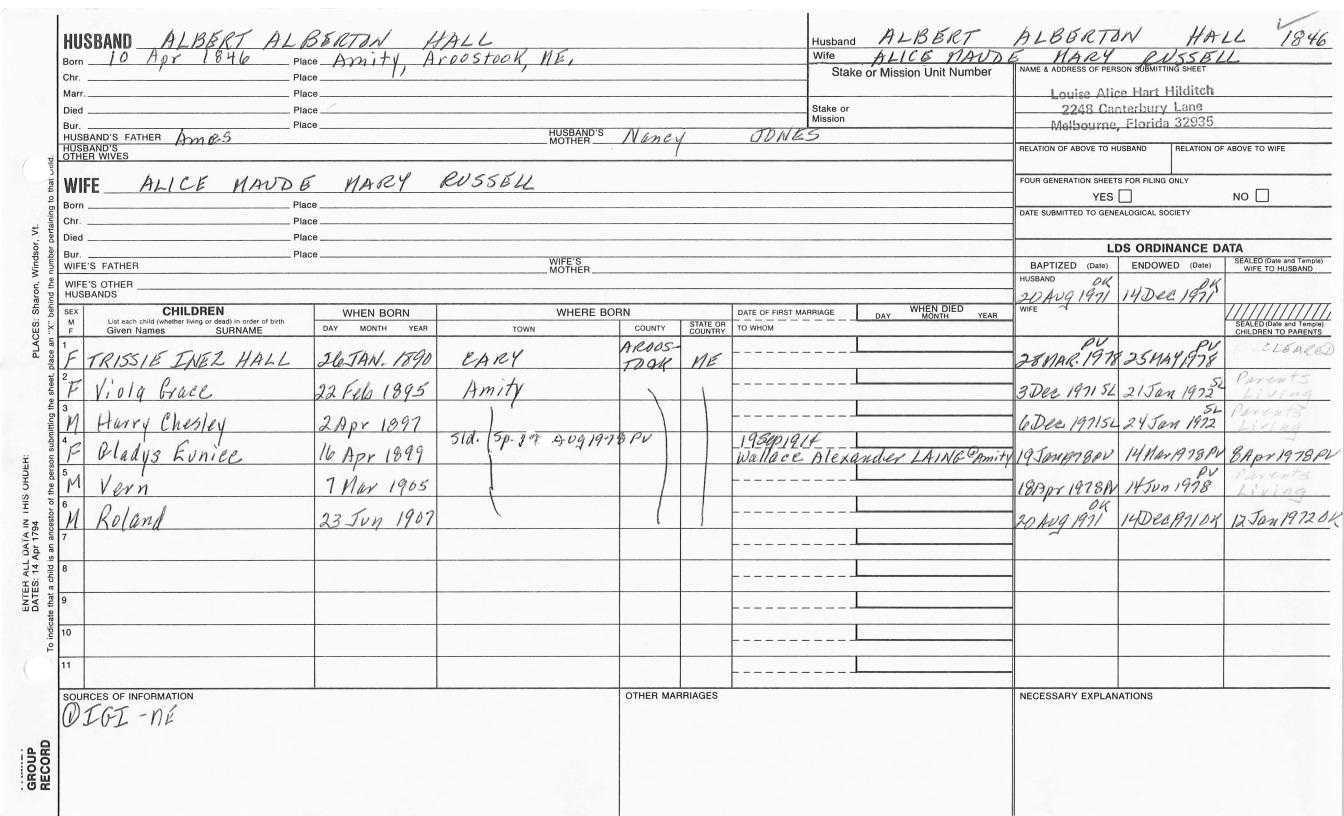 HUSBAND ALBERT ALBERTON HALL
Born 10 Apr 1846 Place Amity, Aroostook, ME.
Chr. Place
Marr. Place
Died Place
Bur. Place
HUSBAND'S FATHER Ames HUSBAND'S MOTHER Nancy JONES
HUSBAND'S OTHER WIVES
Husband ALBERT ALBERTON HALL 1846
Wife ALICE MAUDE MARY RUSSELL
Stake or Mission Unit Number
Stake or Mission
NAME & ADDRESS OF PERSON SUBMITTING SHEET
Louise Alice Hart Hilditch
2248 Canterbury Lane
Melbourne, Florida 32935
RELATION OF ABOVE TO HUSBAND RELATION OF ABOVE TO WIFE
FOUR GENERATION SHEETS FOR FILING ONLY
YES NO
DATE SUBMITTED TO GENEALOGICAL SOCIETY
WIFE ALICE MAUDE MARY RUSSELL
Born Place
Chr. Place
Died Place
Bur. Place
WIFE'S FATHER WIFE'S MOTHER
WIFE'S OTHER HUSBANDS
LDS ORDINANCE DATA
BAPTIZED (Date) ENDOWED (Date) SEALED (Date and Temple) WIFE TO HUSBAND
HUSBAND 20 Aug 1971 OK 14 Dec 1971 OK
WIFE
SEALED (Date and Temple) CHILDREN TO PARENTS
SEX M F CHILDREN WHEN BORN WHERE BORN DATE OF FIRST MARRIAGE WHEN DIED
List each child (whether living or dead) in order of birth
Given Names SURNAME DAY MONTH YEAR TOWN COUNTY STATE OR COUNTRY TO WHOM DAY MONTH YEAR
1 F TRISSIE INEZ HALL 26 JAN. 1890 CARY AROOSTOOK ME 28 MAR. 1978 PV 25 MAY 1978 PV CLEARED
2 F Viola Grace 22 Feb 1895 Amity 3 Dec 1971 SL 21 Jan 1972 SL Parents Living
3 M Harry Chesley 2 Apr 1897 6 Dec 1971 SL 24 Jan 1972 SL Parents Living
Sld. Sp. 8 Aug 1978 PV 19 Sep 1914
4 F Gladys Eunice 16 Apr 1899 Wallace Alexander LAING @ Amity 19 Jan 1978 PV 14 Mar 1978 PV 8 Apr 1978 PV
5 M Vern 7 Mar 1905 18 Apr 1978 PV 14 Jun 1978 PV Parents Living
6 M Roland 23 Jun 1907 20 Aug 1971 OK 14 Dec 1971 OK 12 Jan 1972 OK
7
8
9
10
11
SOURCES OF INFORMATION OTHER MARRIAGES NECESSARY EXPLANATIONS
① IGI - ME
PLACES: Sharon, Windsor, Vt.
ENTER ALL DATA IN THIS ORDER:
DATES: 14 Apr 1794
To indicate that a child is an ancestor of the person submitting the sheet, place an "X" behind the number pertaining to that child.
GROUP
RECORD